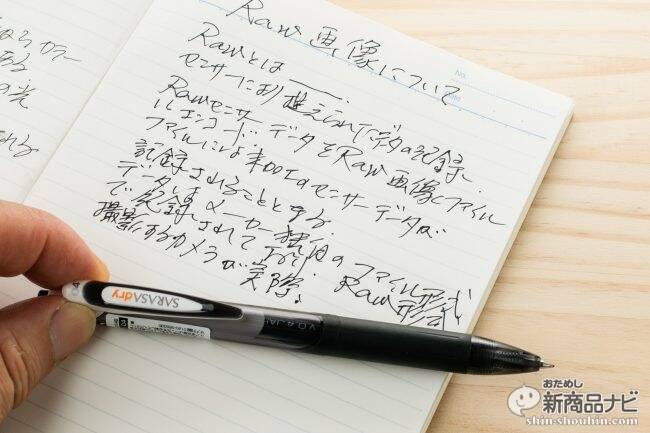 Raw画像について
Rawとは
センサーにより捉えられたデータの記録、
Rawセンサーデータを Raw画像にファイル
ルエンコード.
ファイルには未加工のセンサーデータが
記録されることとする
データはメーカー独自のファイル形式
で記録されており. Raw形式
撮影するカメラが実際、
カラー
ある
の光
れる
No.
Date
SARASAdry
0.4
おためし
新商品ナビ
shin-shouhin.com